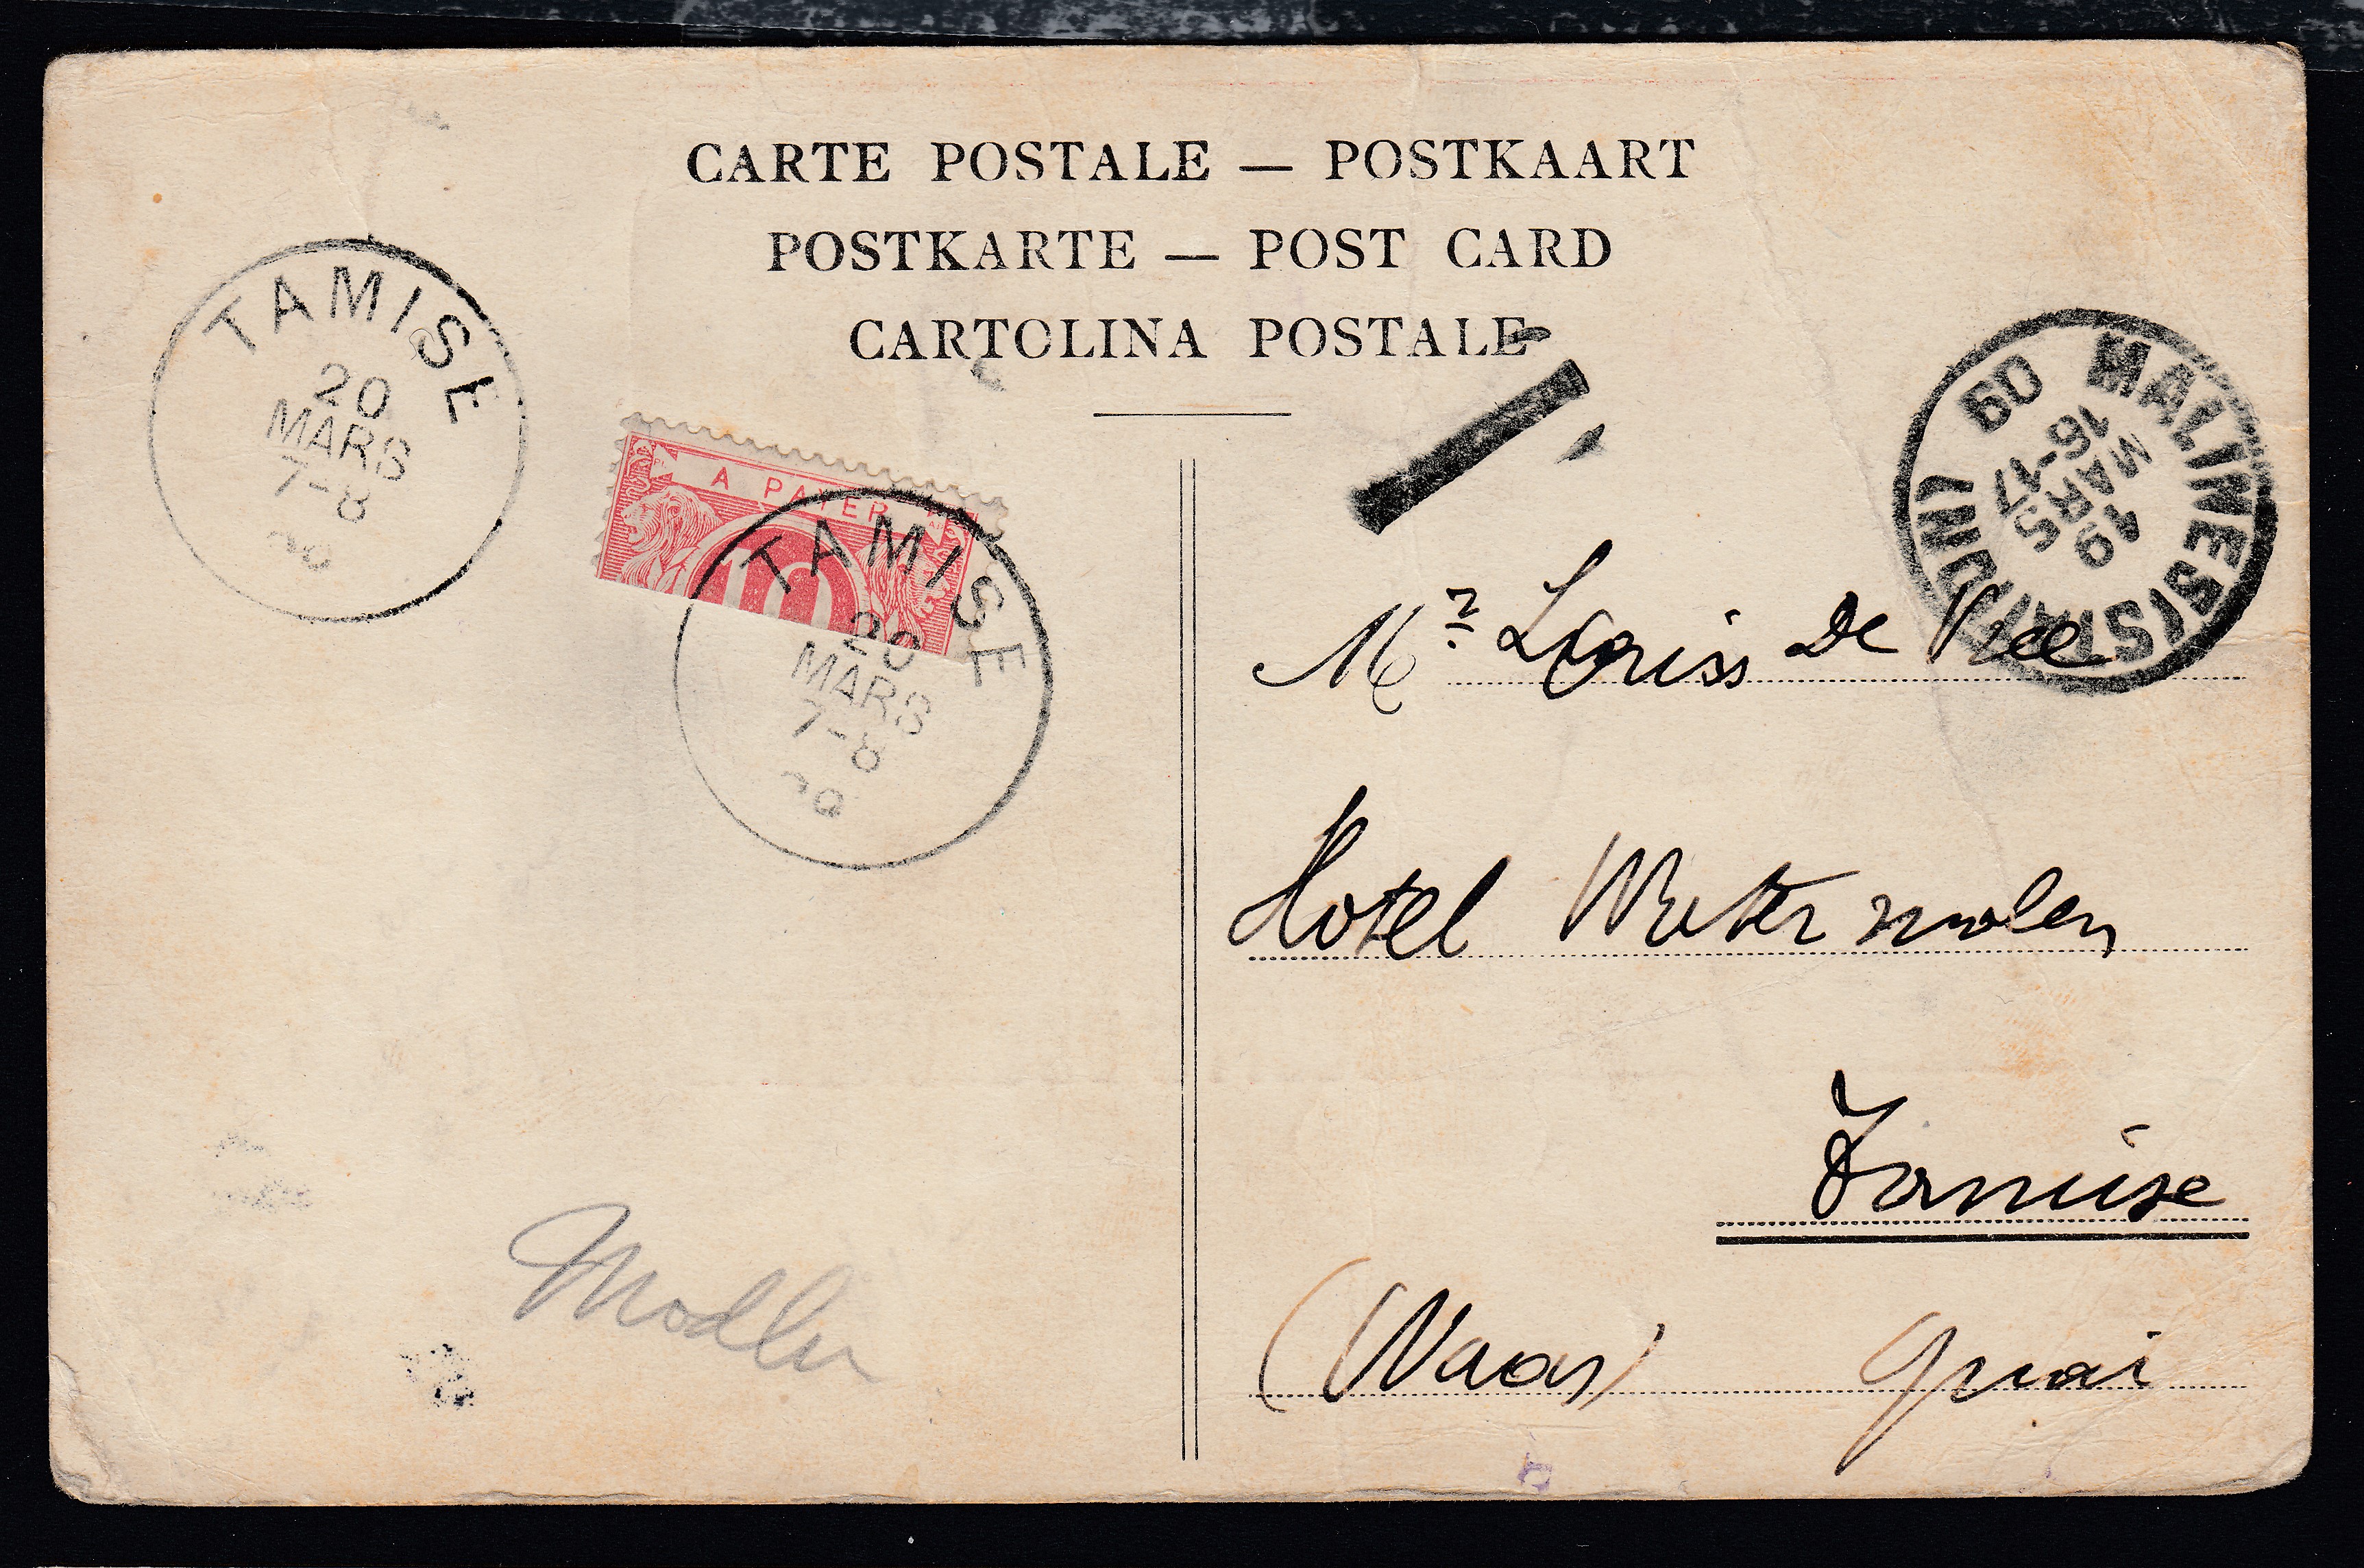 CARTE POSTALE — POSTKAART
POSTKARTE — POST CARD
CARTOLINA POSTALE
TAMISE
20
MARS
7-8
A PAYER
10
TAMISE
20
MARS
7-8
MALINES (STATION)
16-17
MARS
19
09
T
Mr. Louiss De
Hotel Water molen
Tamise
(Waas) Quai